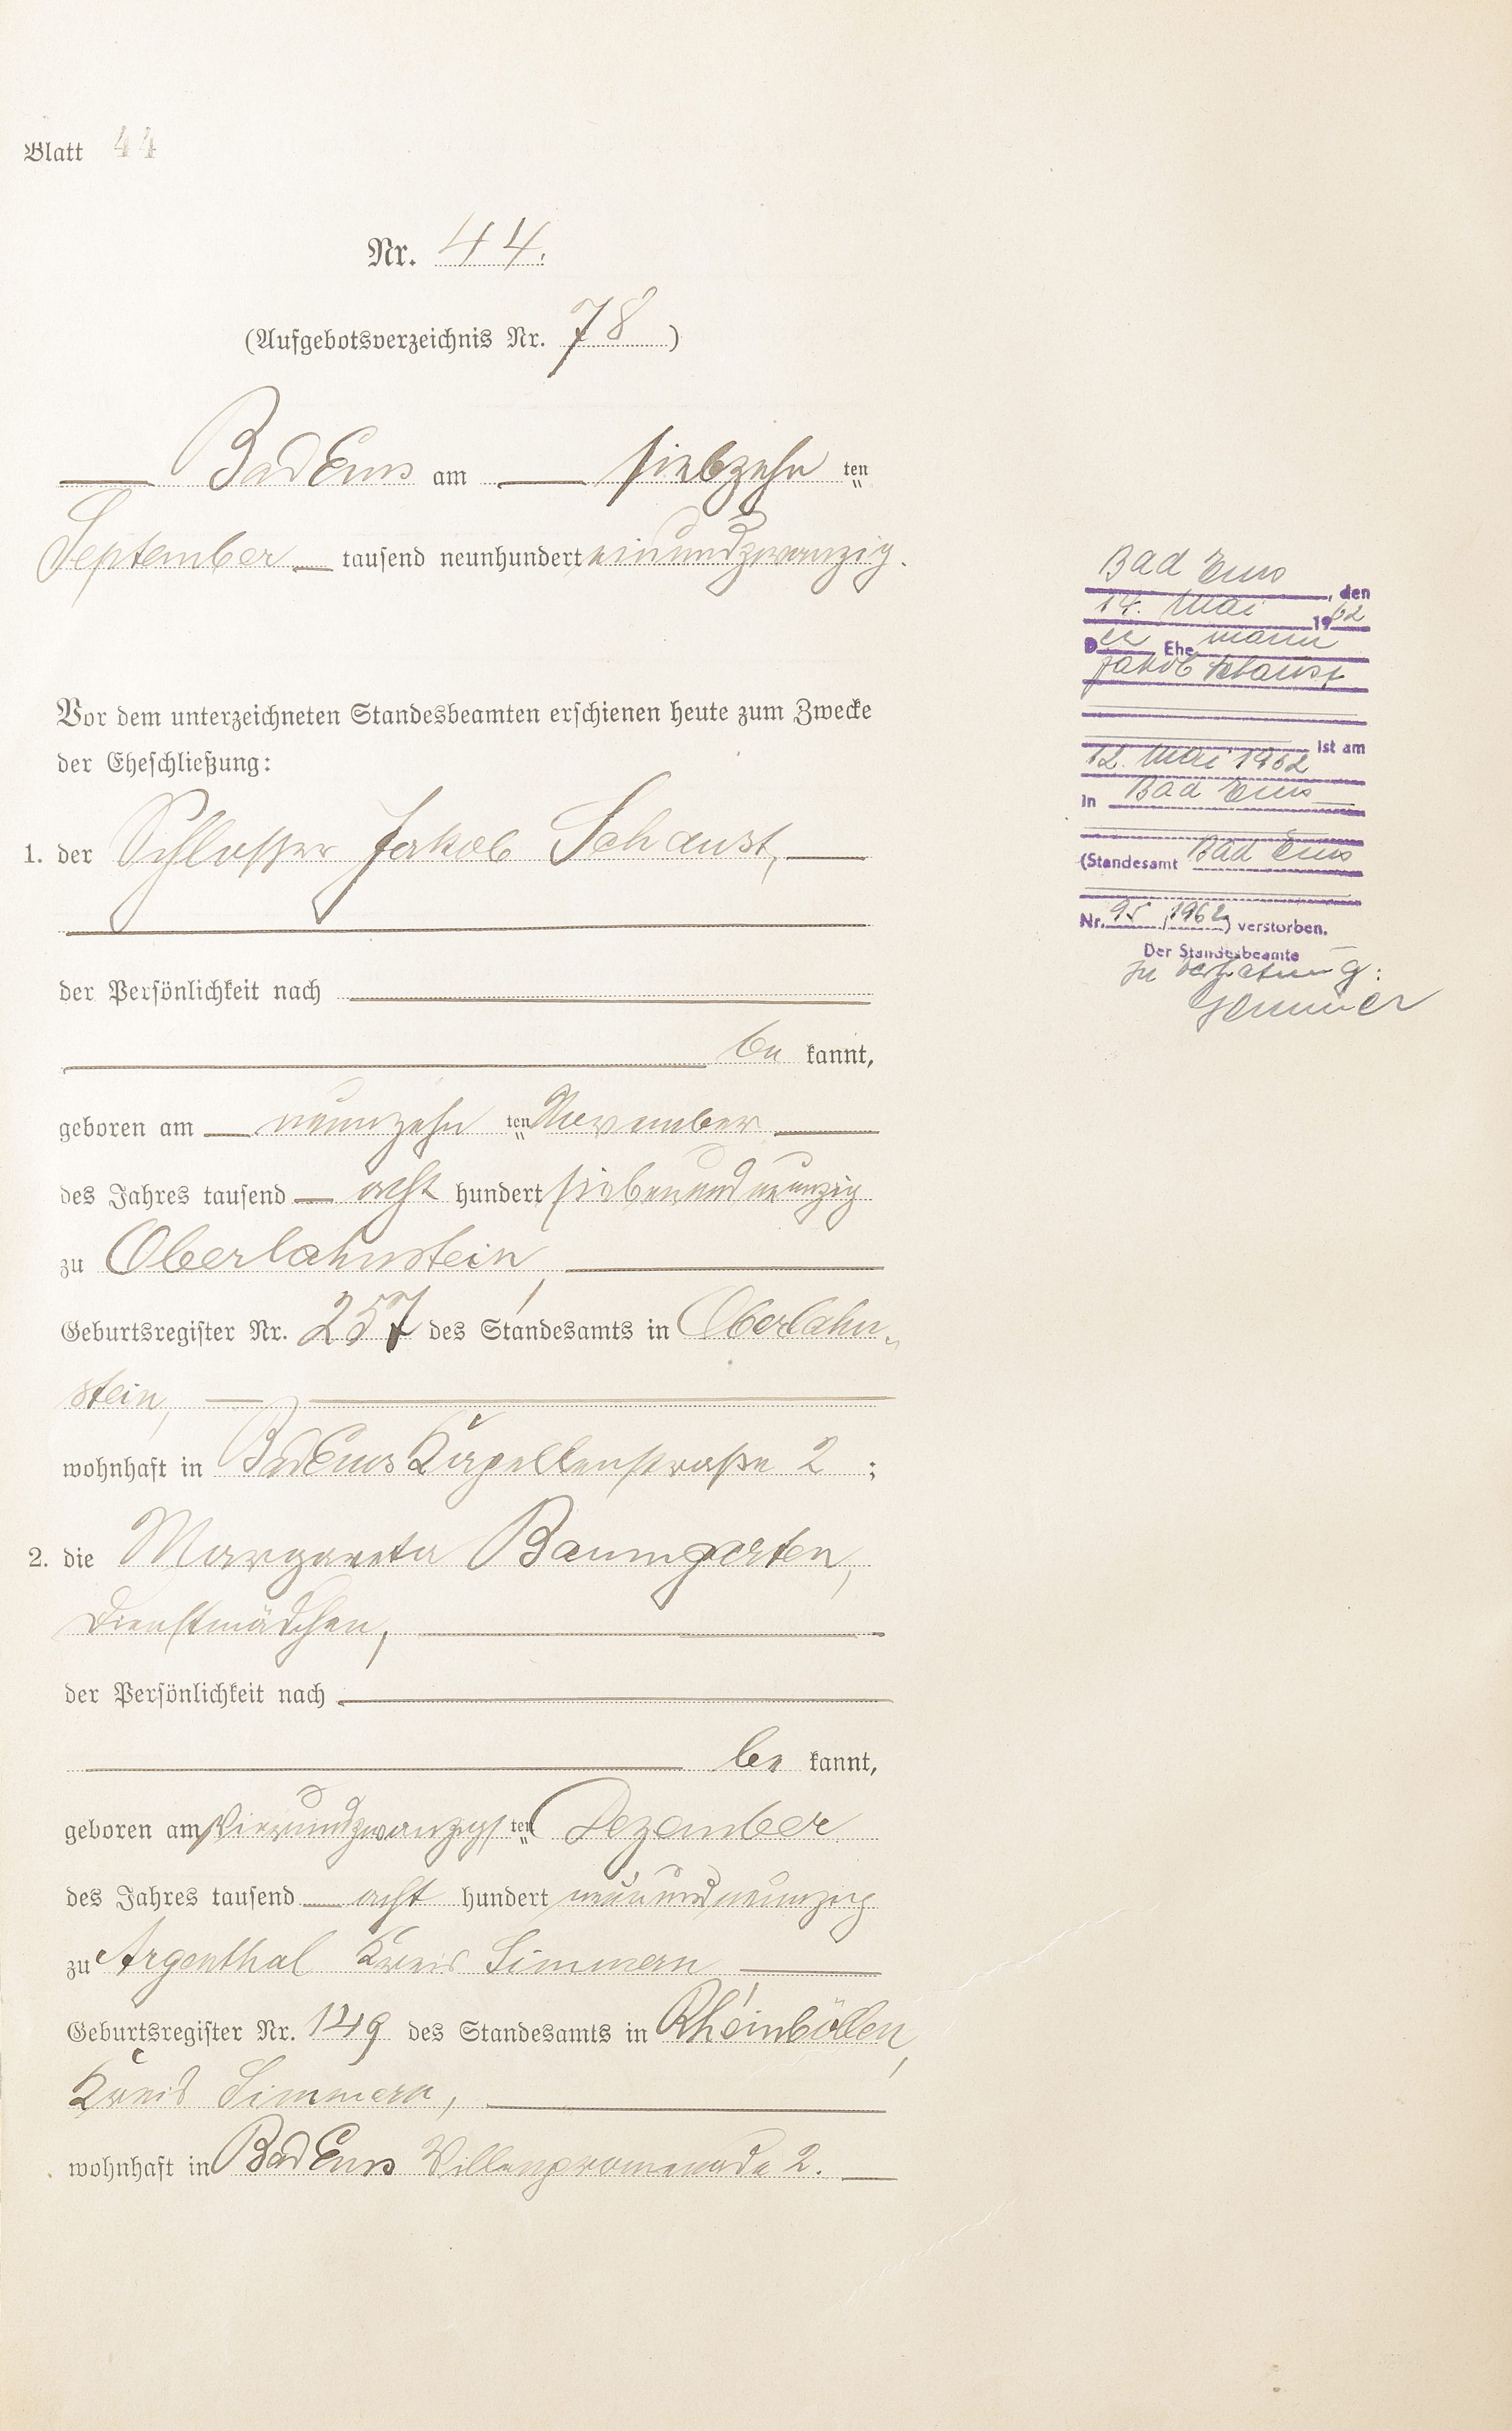 Blatt 44
Nr. 44.
(Aufgebotsverzeichnis Nr. 78)
Bad Ems am siebzehn ten
September tausend neunhundert einundzwanzig.
Vor dem unterzeichneten Standesbeamten erschienen heute zum Zwecke
der Eheschließung:
1. der Schlosser Jakob Schaust,
der Persönlichkeit nach
be kannt,
geboren am neunzehn ten November
des Jahres tausend acht hundert siebenundneunzig
zu Oberlahnstein,
Geburtsregister Nr. 257 des Standesamts in Oberlahn-
stein,
wohnhaft in Bad Ems Kapellenstraße 2 ;
2. die Margareta Baumgarten,
Dienstmädchen,
der Persönlichkeit nach
be kannt,
geboren am vierundzwanzigs ten Dezember
des Jahres tausend acht hundert neunundneunzig
zu Argenthal Kreis Simmern,
Geburtsregister Nr. 149 des Standesamts in Rheinböllen,
Kreis Simmern,
wohnhaft in Bad Ems Villenpromenade 2.
Bad Ems, den
14. Mai 1962
Der Ehemann
Jakob Schaust
ist am
12. Mai 1962
in Bad Ems
(Standesamt Bad Ems
Nr. 95/1962) verstorben.
Der Standesbeamte
In Vertretung: